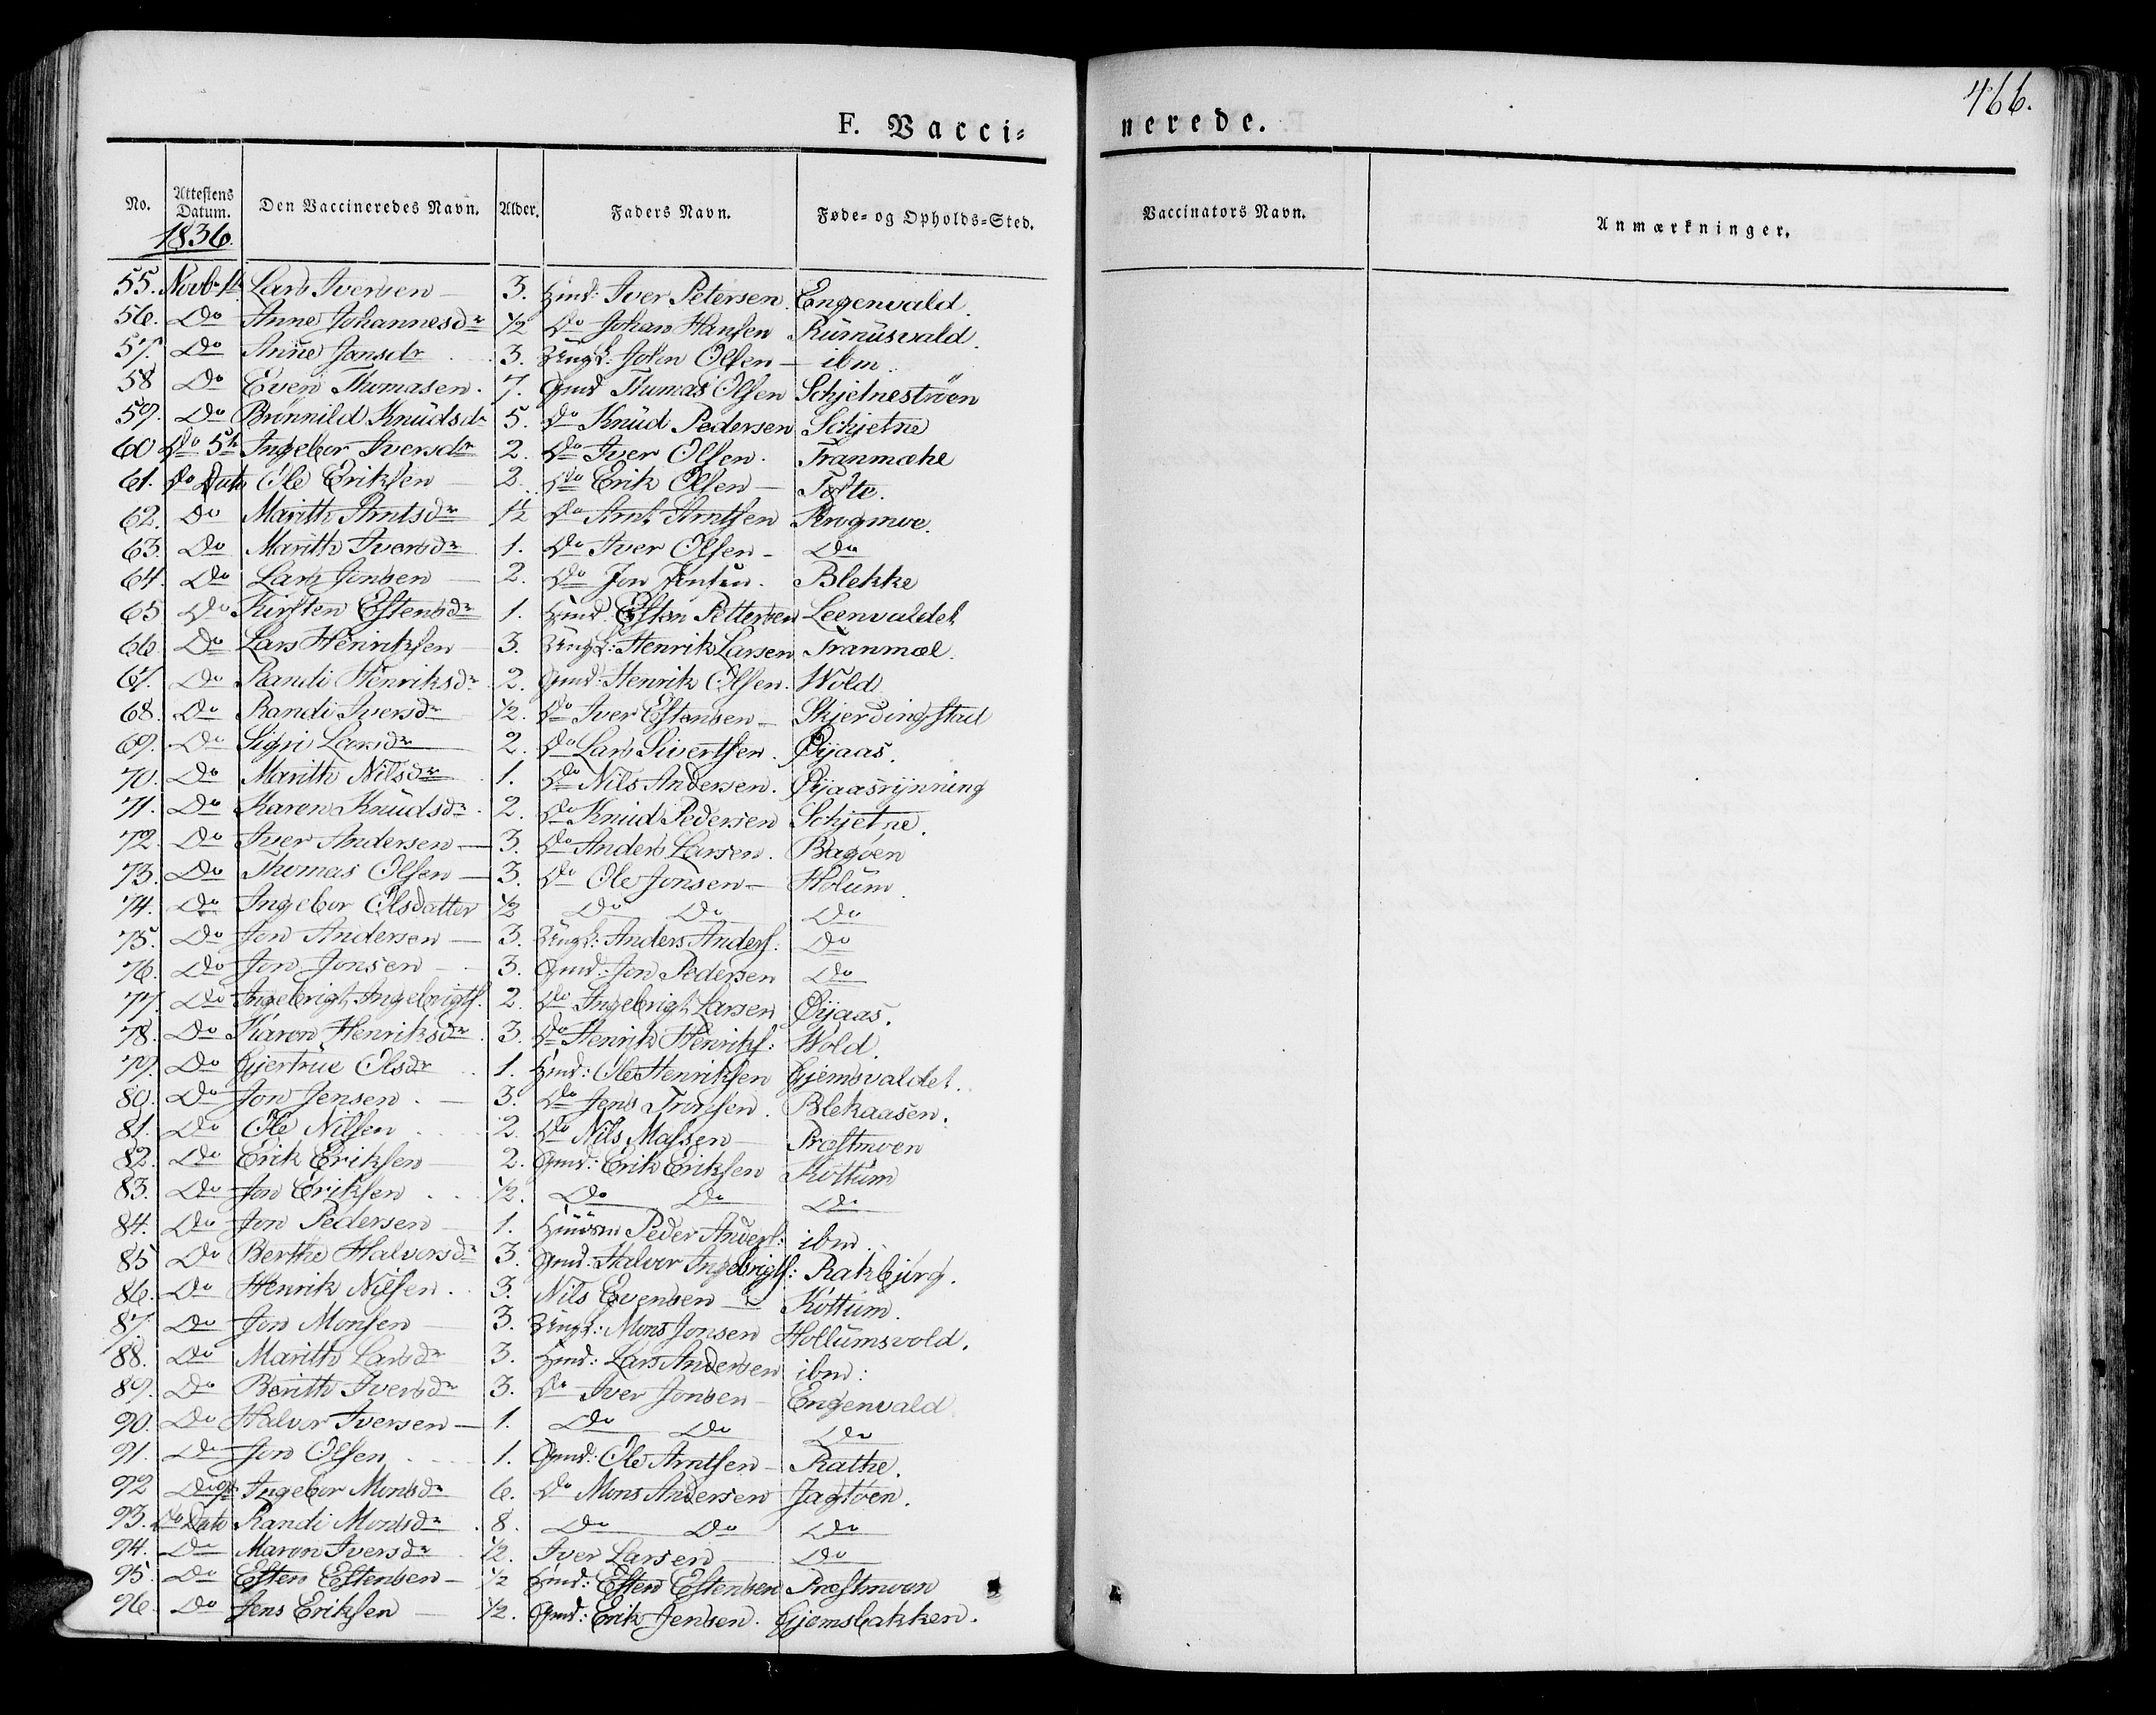 466.
F. Vacci=
nerede.
No. Attestens Datum. Den Vaccineredes Navn. Alder. Faders Navn. Føde- og Opholds-Sted. Vaccinators Navn. Anmærkninger.
1836.
55. Novb. Lars Iversen — 3. Huusd: Iver Petersen Engenvald.
56. Do Anne Johannesdr 1/2 Do Johan Hansen Rumusvald.
57. Do Anne Jonsdr 3. Ungk: John Olsen — ibm.
58 Do Even Thomasen. 7. Gmd Thomas Olsen Schjetnestrøen
59. Do Brønnild Knudsdr 5. Do Knud Pedersen Schjetne
60 Do 5te Ingebor Iversdr 2. Do Iver Olsen. Tranmæhl
61. Do Dato Ole Eriksen — 2. Do Erik Olsen — Tofte.
62. Do Marith Arntsdr 1/2 Do Arnt Arntsen Krogmoe.
63. Do Marith Iversdr 1. Do Iver Olsen — Do
64. Do Lars Jonsen — 2. Do Jon Jonsen. Blekke
65 Do Kirsten Estensdr 1. Huusd. Esten Pettersen Leenvaldet
66. Do Lars Henriksen 3. Ungk: Henrik Larsen Tranmæl.
67. Do Randi Henriksdr 2. Gmd: Henrik Olsen. Wold
68. Do Randi Iversdr 1/2. Do Iver Estensen — Skjerdingstad
69. Do Sigri Larsdr 2. Do Lars Sivertsen. Øyaas.
70. Do Marith Nilsdr 1. Do Nils Andersen. Øyaasrynning
71. Do Karen Knudsdr 2. Do Knud Pedersen Schjetne.
72. Do Iver Andersen — 3. Do Anders Larsen. Bagøen
73. Do Thomas Olsen — 3. Do Ole Jonsen — Holum.
74. Do Ingebor Olsdatter 1/2 Do Do Do
75. Do Jon Andersen — 3. Ungk: Anders Anders: Do
76. Do Jon Jonsen — 3. Gmd: Jon Pedersen Do
77. Do Ingebrigt Ingebrigts. 2. Do Ingebrigt Larsen Øyaas.
78. Do Karen Henriksdr. 3. Do Henrik Henriks: Wold.
79. Do Gjertrue Olsdr 1. Huusd: Ole Henriksen Gjemsvaldet.
80. Do Jon Jensen. — 3. Do Jens Tronsen. Blekaasen.
81. Do Ole Nilsen 2. Do Nils Massen — Præstmoen
82. Do Erik Eriksen — 2. Gmd: Erik Eriksen Kottum
83. Do Jon Eriksen 1/2. Do Do Do
84. Do Jon Pedersen 1. Huusm Peder Anders: ibm.
85 Do Berthe Halvorsdr 3. Gmd: Halvor Ingebrigts: Rakbjørg.
86. Do Henrik Nilsen. 3. Nils Evensen — Kottum.
87. Do Jon Monsen — 3. Ungk: Mons Jonsen Hollumsvold.
88. Do Marith Larsdr 3. Huusd: Lars Andersen ibm:
89. Do Berith Iversdr 3. Do Iver Jonsen — Engenvald
90. Do Halvor Iversen — 1. Do Do Do
91. Do Jon Olsen 1. Gmd: Ole Arntsen — Rathe.
92 Do Ingebor Monsdr 6. Do Mons Andersen Jagtøen.
93. Do Dato Randi Monsdr 8. Do Do Do
94. Do Maren Iversdr 1/2. Iver Larsen — Do
95. Do Esten Estensen — 1/2 Huusd: Esten Estensen Præstmoen
96. Do Jens Eriksen — 1/2. Gmd: Erik Jensen. Gjemsbakken.